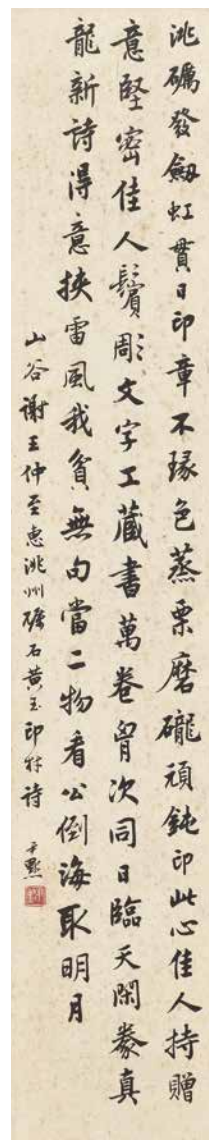 洮礪發劔虹貫日印章不瑑色蒸栗磨礲頑鈍印此心佳人持贈
意堅密佳人鬢彫文字工藏書萬卷胷次同日臨天閑豢真
龍新詩得意挾雷風我貧無句當二物看公倒海取明月
山谷謝王仲至惠洮州礪石黃玉印材詩 尹默